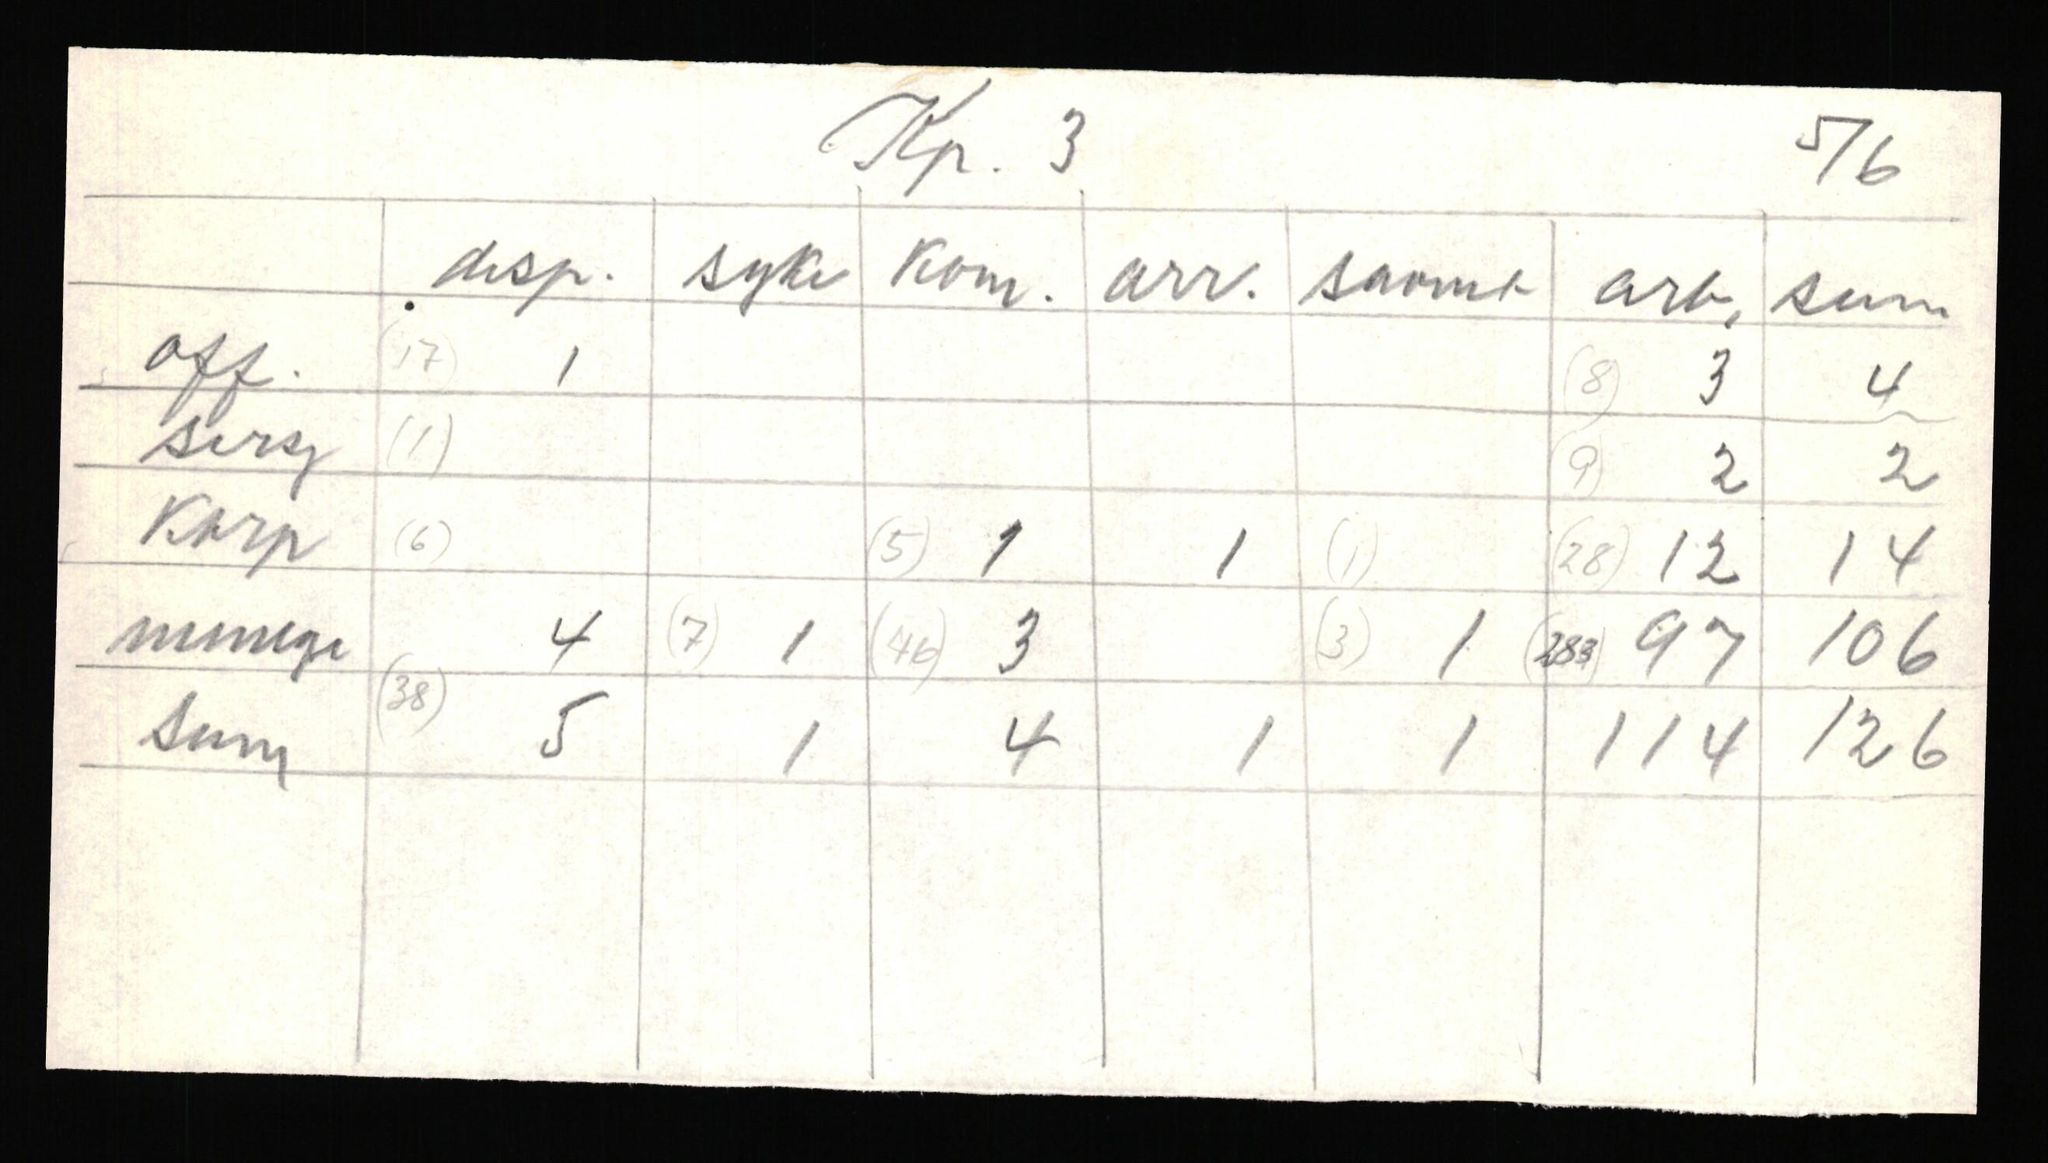 Kp. 3 5/6
disp. syke Kom. arr. arb, sum
off. (17) 1 (8) 3 4
sersj (1) (9) 2 2
Korp (6) (5) 1 1 (1) (28) 12 14
menige 4 (7) 1 (46) 3 (3) 1 (283) 97 106
sum (38) 5 1 4 1 1 114 126